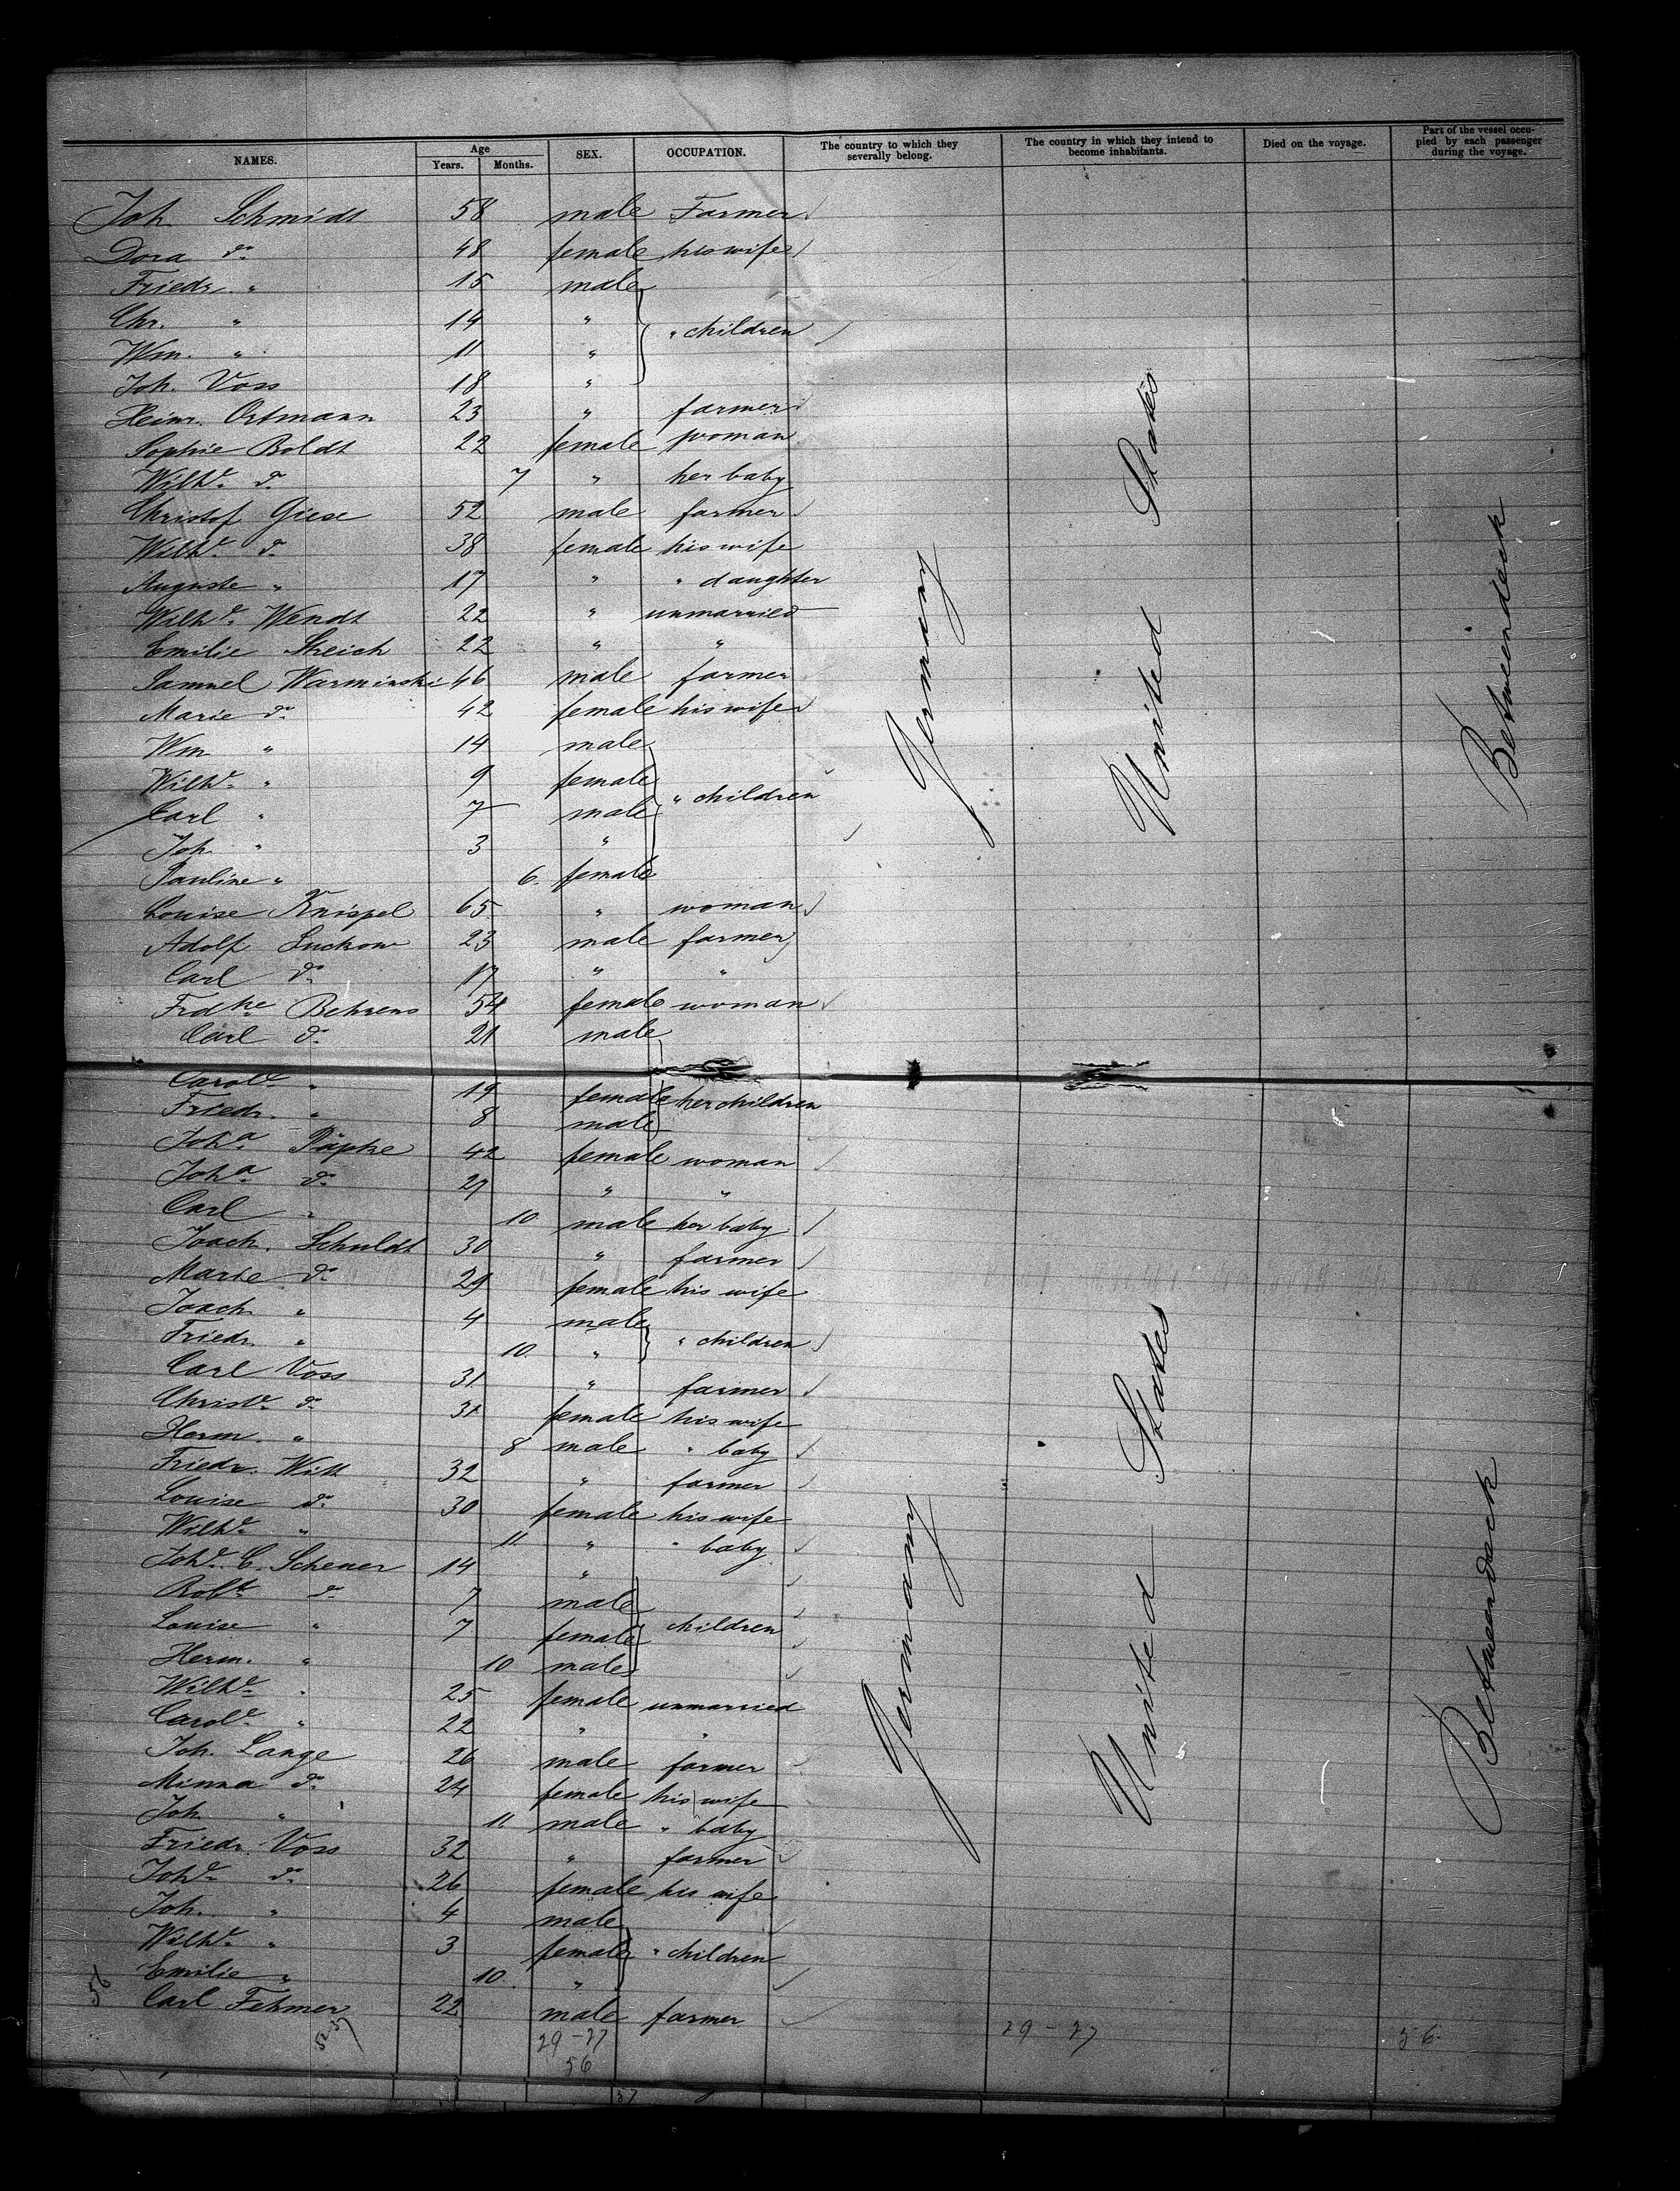 NAMES. Age Years. Months. SEX. OCCUPATION. The country to which they severally belong. The country in which they intend to become inhabitants. Died on the voyage. Part of the vessel occupied by each passenger during the voyage.
Joh. Schmidt 58 male Farmer
Dora do 48 female his wife
Friedr. " 15 male
Chr. " 14 " " children
Wm. " 11 "
Joh. Voss 18 "
Heinr. Ortmann 23 " farmer
Sophie Boldt 22 female woman
Wilhe do 7 " her baby
Christof Giese 52 male farmer
Wilhe do 38 female his wife
Auguste " 17 " " daughter
Wilhe Wendt 22 " unmarried
Emilie Streich 22 " "
Samuel Warminski 46 male farmer
Marie do 42 female his wife
Wm " 14 male
Wilhe " 9 female " children
Carl " 7 male
Joh. " 3 "
Pauline " 6. female
Louise Knispel 65 " woman
Adolf Luckow 23 male farmer
Carl do 17 " "
Frdke Behrens 54 female woman
Carl do 21 male
Carole " 19 female her children
Friedr. " 8 male
Joha Päpke 42 female woman
Joha do 29 " "
Carl " 10 male her baby
Joach. Schuldt 30 " farmer
Marie do 29 female his wife
Joach " 4 male " children
Friedr. " 10. "
Carl Voss 31 " farmer
Christe do 31 female his wife
Herm. " 8 male " baby
Friedr. Witt 32 " farmer
Louise do 30 female his wife
Wilhe " 11 " " baby
Johe C. Scheuer 14 "
Robt do 7 male
Louise " 7 female children
Herm. " 10 male
Wilhe " 25 female unmarried
Carole " 22 " "
Joh. Lange 26 male farmer
Minna do 24 female his wife
Joh. " 11 male " baby
Friedr. Voss 32 " farmer
Johe do 26 female his wife
Joh. " 4 male
Wilhe " 3 female " children
Emilie " 10 "
56 Carl Fehmer 22 male farmer
29-27 29-27 56
56
57
Germany United States Betweendeck
Germany United States Betweendeck